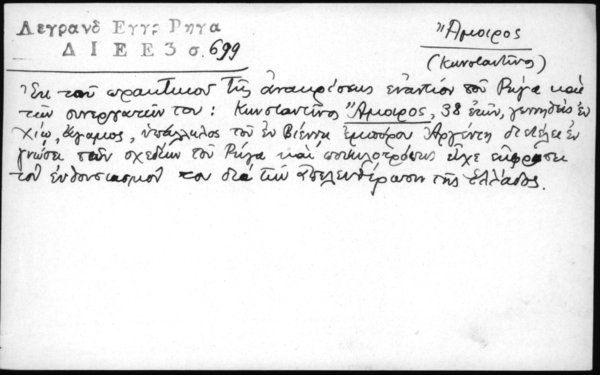 Λεγρανδ Εγγρ Ρηγα
Δ Ι Ε Ε 3 σ. 699
Ἄμοιρος
(Κωνσταντῖνος)
Ἐκ τοῦ πρακτικοῦ τῆς ἀνακρίσεως ἐναντίον τοῦ Ρήγα καὶ
τῶν συνεργατῶν του: Κωνσταντῖνος Ἄμοιρος, 38 ἐτῶν, γεννηθεὶς ἐν
Χίῳ, ἄγαμος, ὑπάλληλος τοῦ ἐν Βιέννῃ ἐμπόρου Ἀργέντη διετέλει ἐν
γνώσει τῶν σχεδίων τοῦ Ρήγα καὶ ποικιλοτρόπως εἶχε ἐκφράσει
τὸν ἐνθουσιασμόν του διὰ τὴν ἀπελευθέρωσιν τῆς Ἑλλάδος.